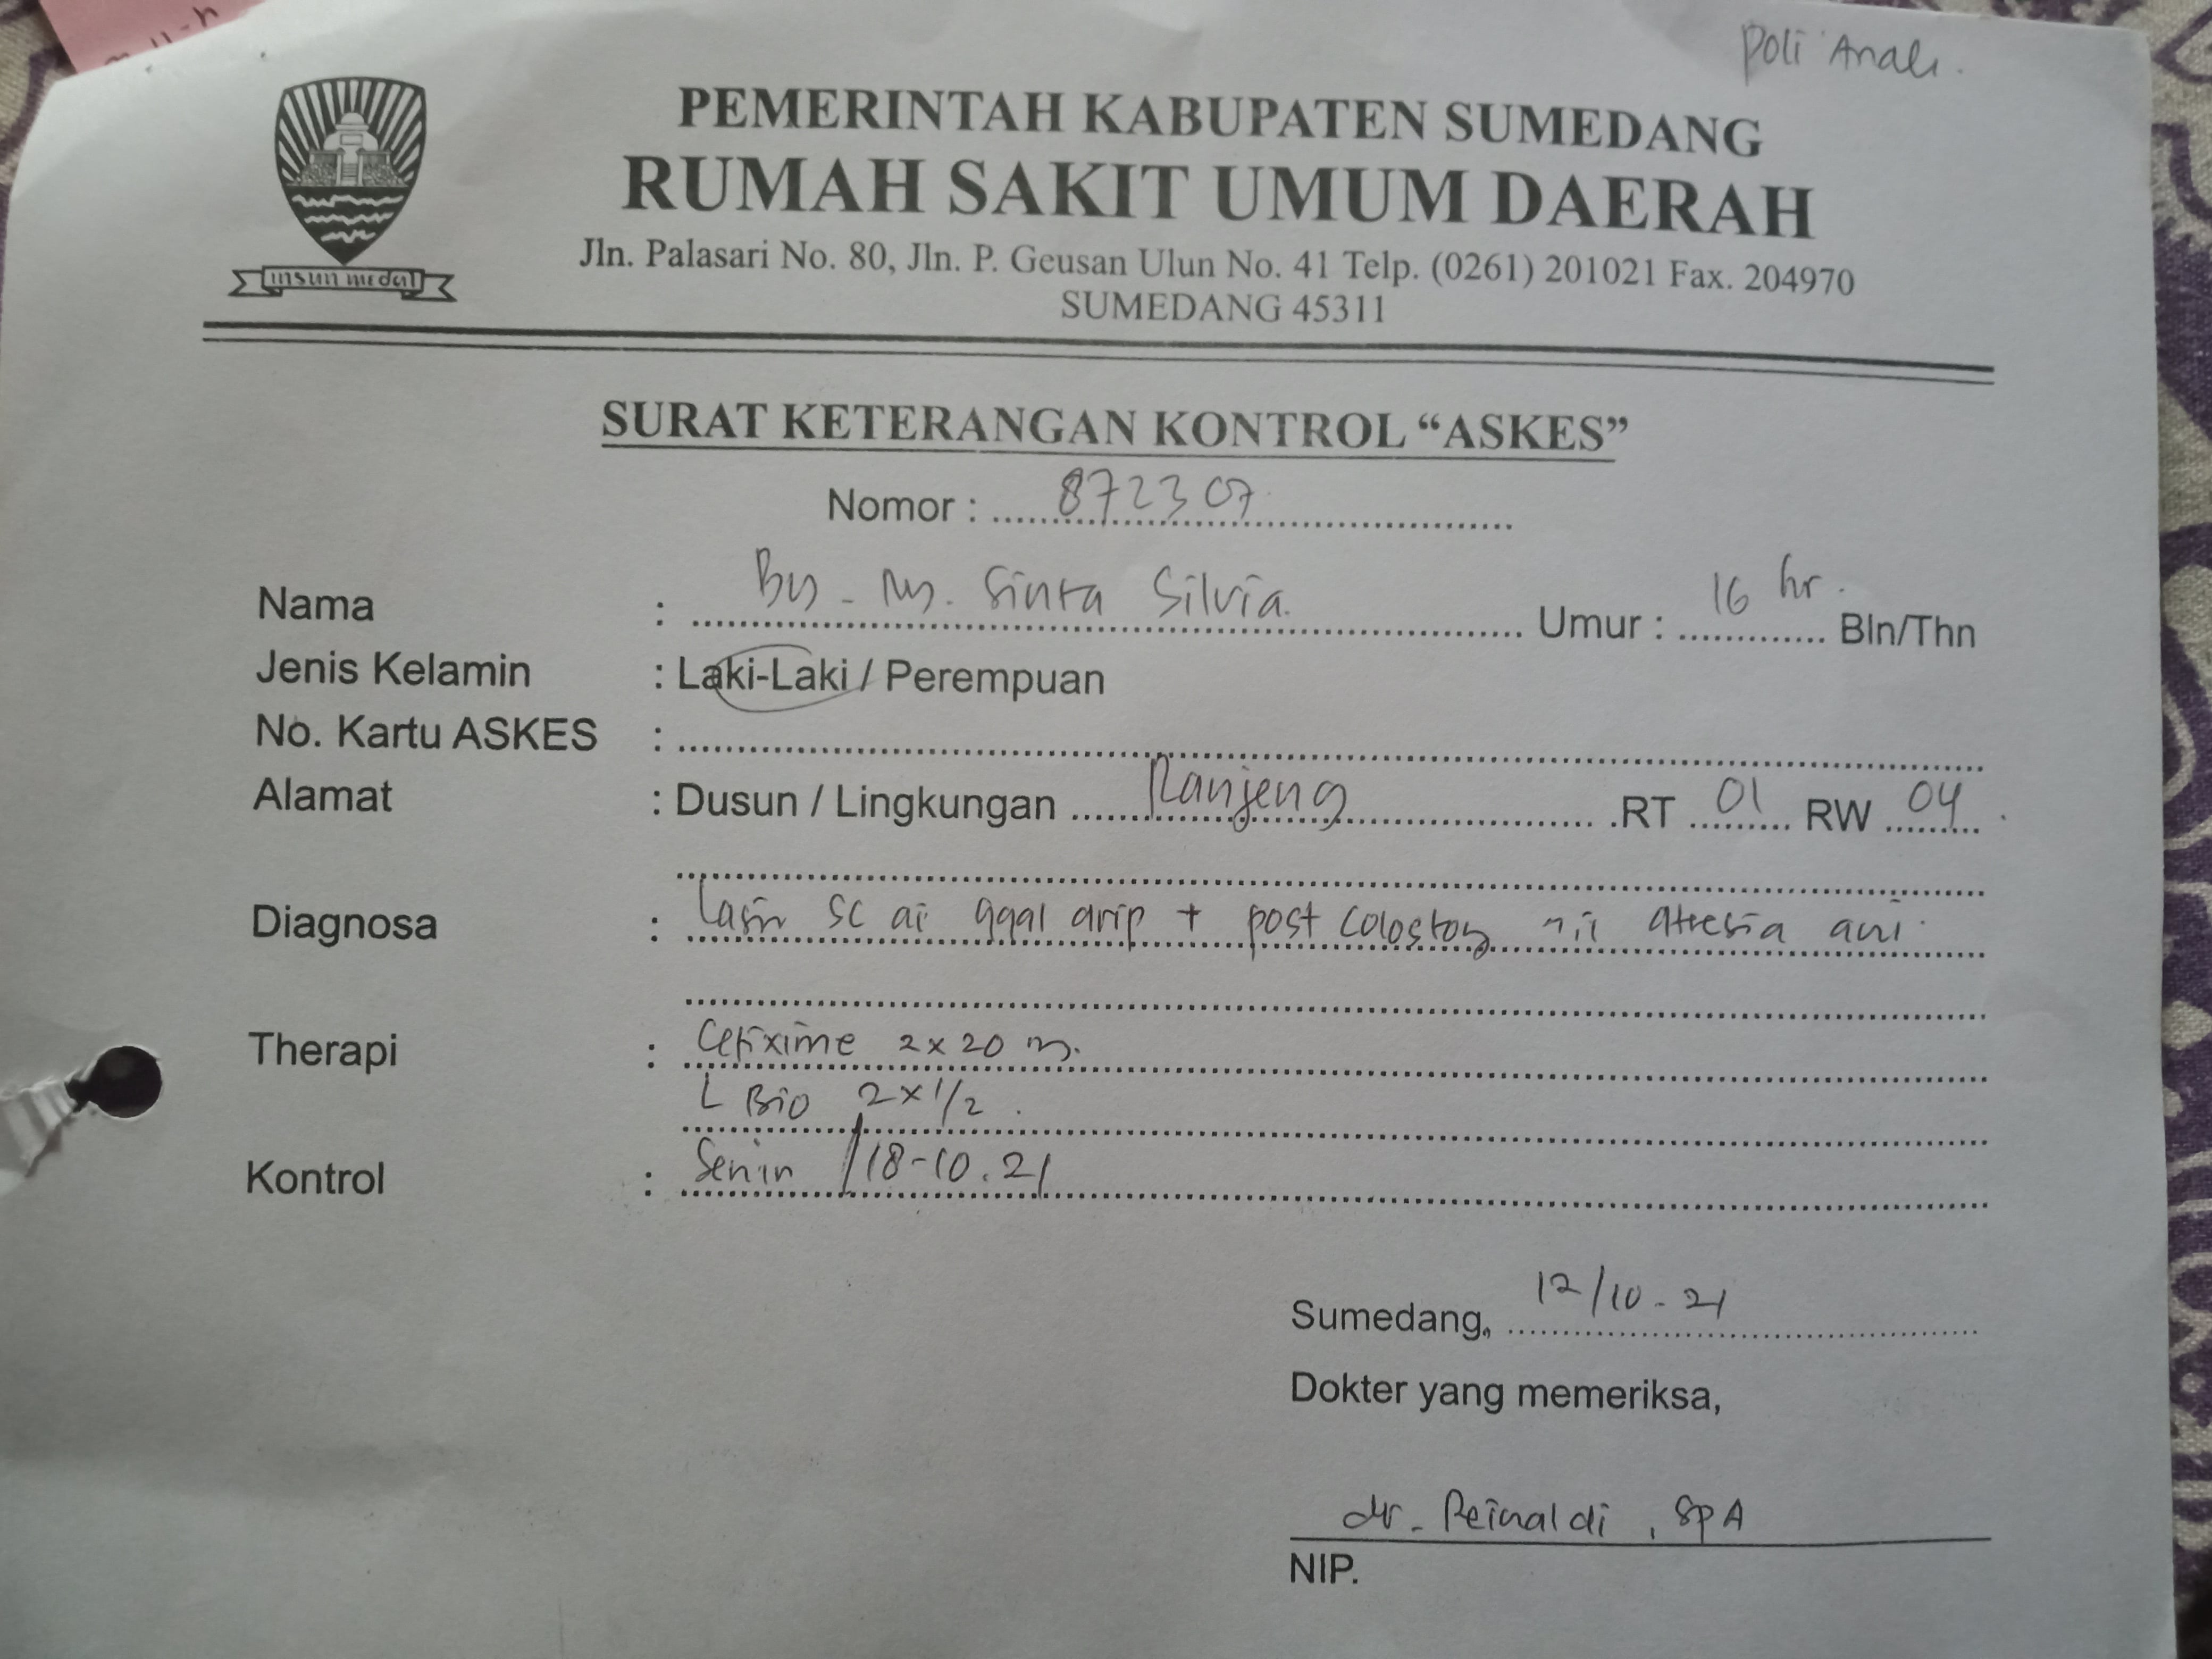 Poli Anak.
PEMERINTAH KABUPATEN SUMEDANG
RUMAH SAKIT UMUM DAERAH
Jln. Palasari No. 80, Jln. P. Geusan Ulun No. 41 Telp. (0261) 201021 Fax. 204970
SUMEDANG 45311
insun medal
SURAT KETERANGAN KONTROL “ASKES”
Nomor : 872307
Nama : By. Ny. Sinta Silvia. Umur : 16 hr. Bln/Thn
Jenis Kelamin : Laki-Laki / Perempuan
No. Kartu ASKES :
Alamat : Dusun / Lingkungan Ranjeng RT 01 RW 04
Diagnosa : SC ai ggal drip + post colostomy atresia ani
Therapi : Cefixime 2 x 20
L Bio 2 x 1/2.
Kontrol : Senin / 18-10.21
Sumedang, 12/10-21
Dokter yang memeriksa,
dr. Reinaldi, SpA
NIP.